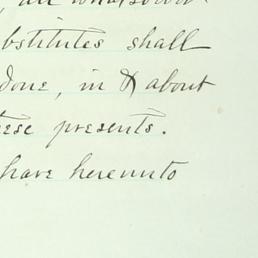 , all whatsoever
bstitutes shall
done, in & about
ese presents.
have hereunto